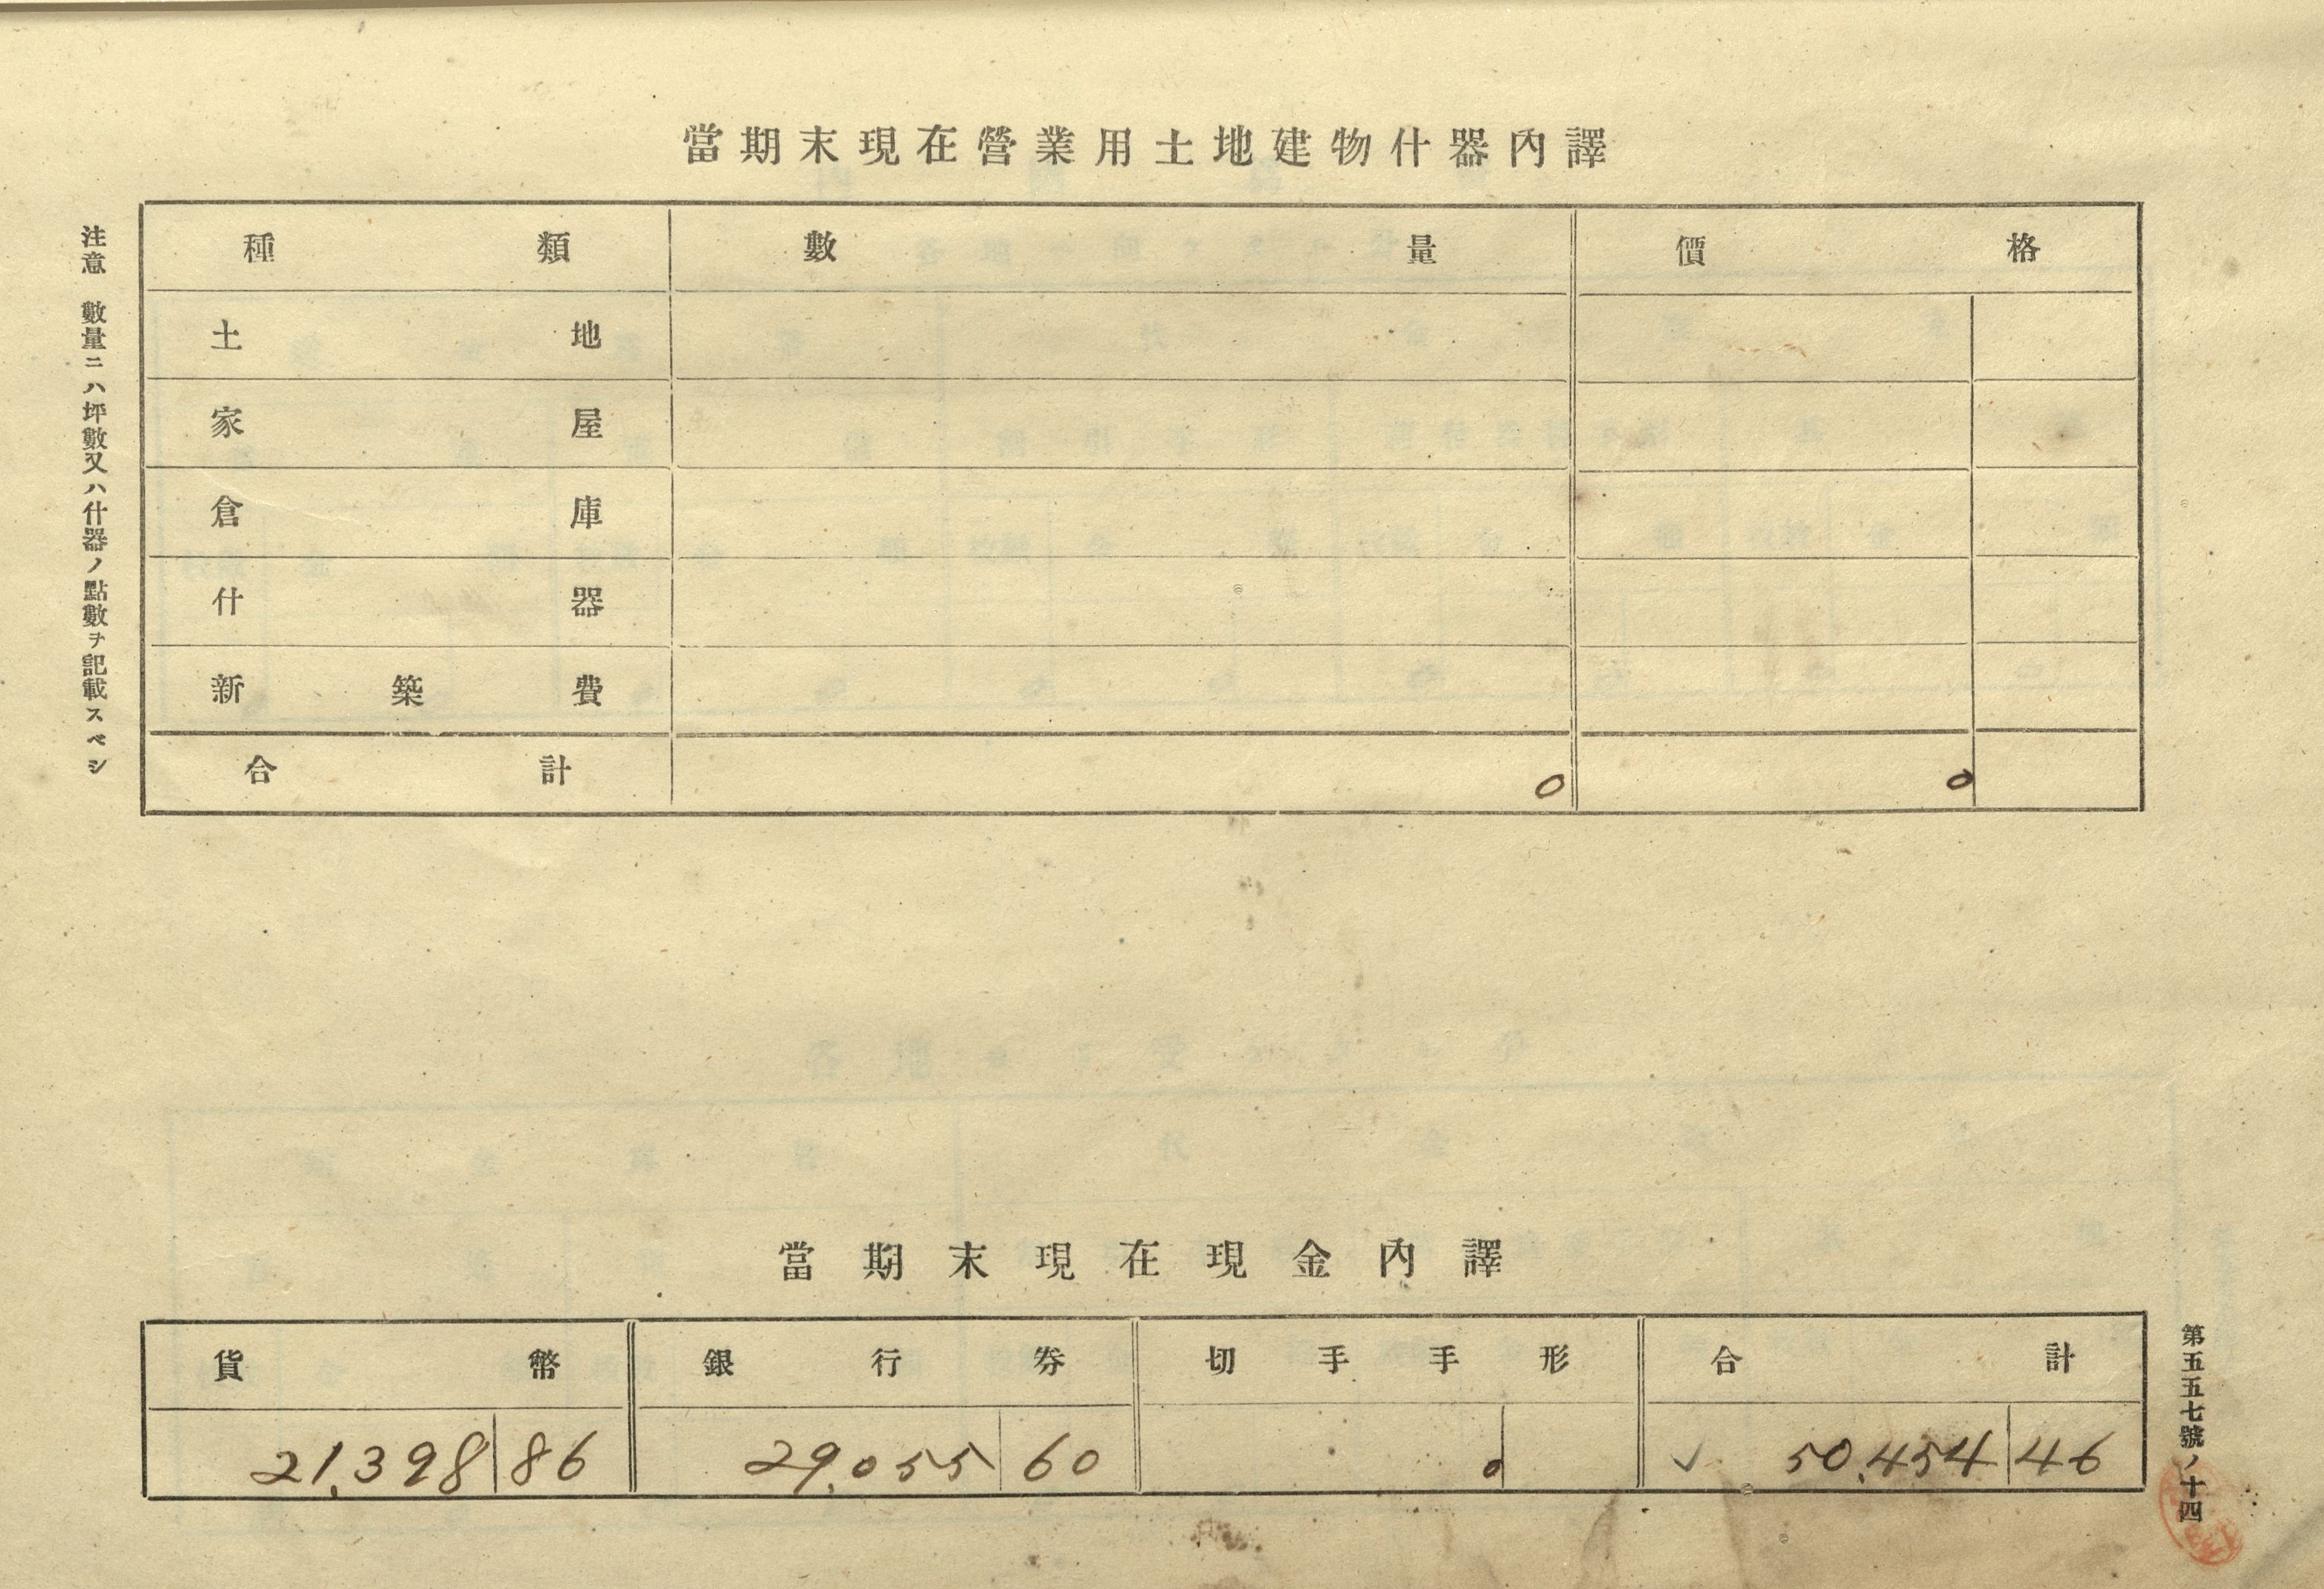 當期末現在營業用土地建物什器內譯
種類 數量 價格
土地
家屋
倉庫
什器
新築費
合計 0 0
注意 數量ニハ坪數又ハ什器ノ點數ヲ記載スベシ
當期末現在現金內譯
貨幣 銀行券 切手手形 合計
21,398 86 29,055 60 0 ✓ 50,454 46
第五五七號ノ十四